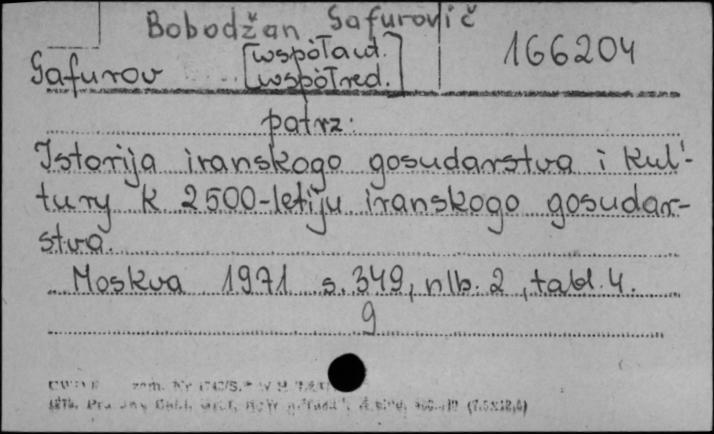 Bobodžan Gafurovič
166204
Gafurov [współaut.
współred.]
patrz:
Istorija iranskogo gosudarstva i kul'-
tury k 2500-letiju iranskogo gosudar-
stva.
Moskva 1971 s. 349, nlb. 2, tabl. 4.
9
zam.